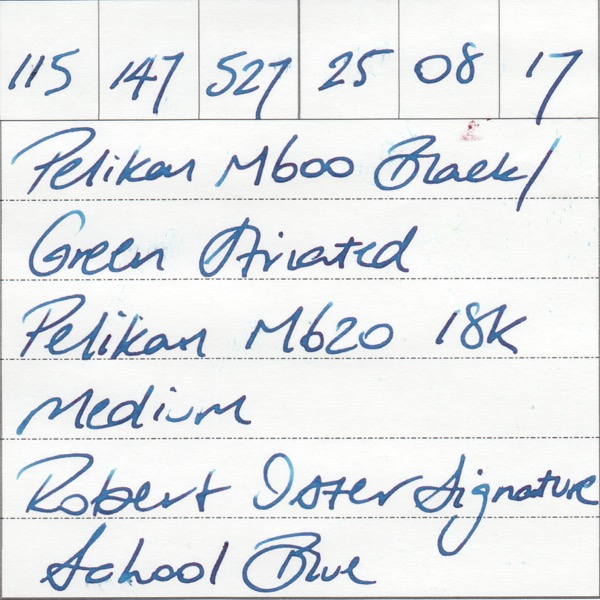 115 147 527 25 08 17
Pelikan M600 Black/
Green Striated
Pelikan M620 18K
Medium
Robert Oster Signature
School Blue